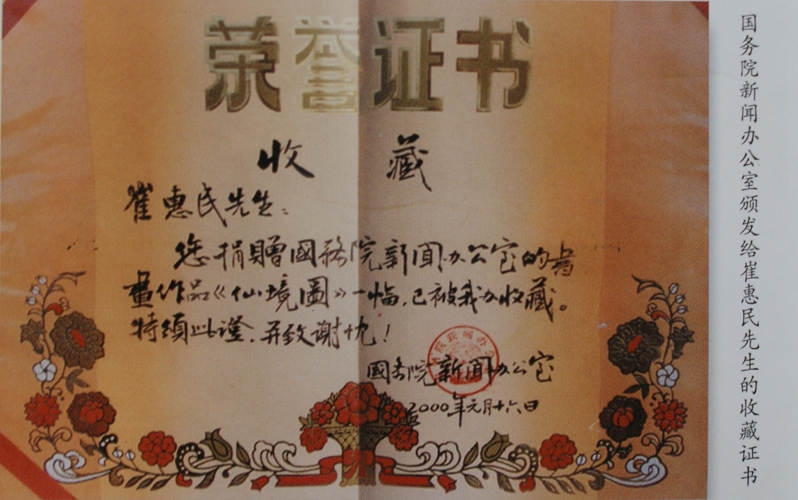 荣誉证书
收藏
崔惠民先生:
您捐贈國務院新闻办公室的书
畫作品《仙境圖》一幅,已被我办收藏。
特颁此證,并致谢忱!
國务院新闻办公室
2000年元月十六日
国务院新闻办公室颁发给崔惠民先生的收藏证书